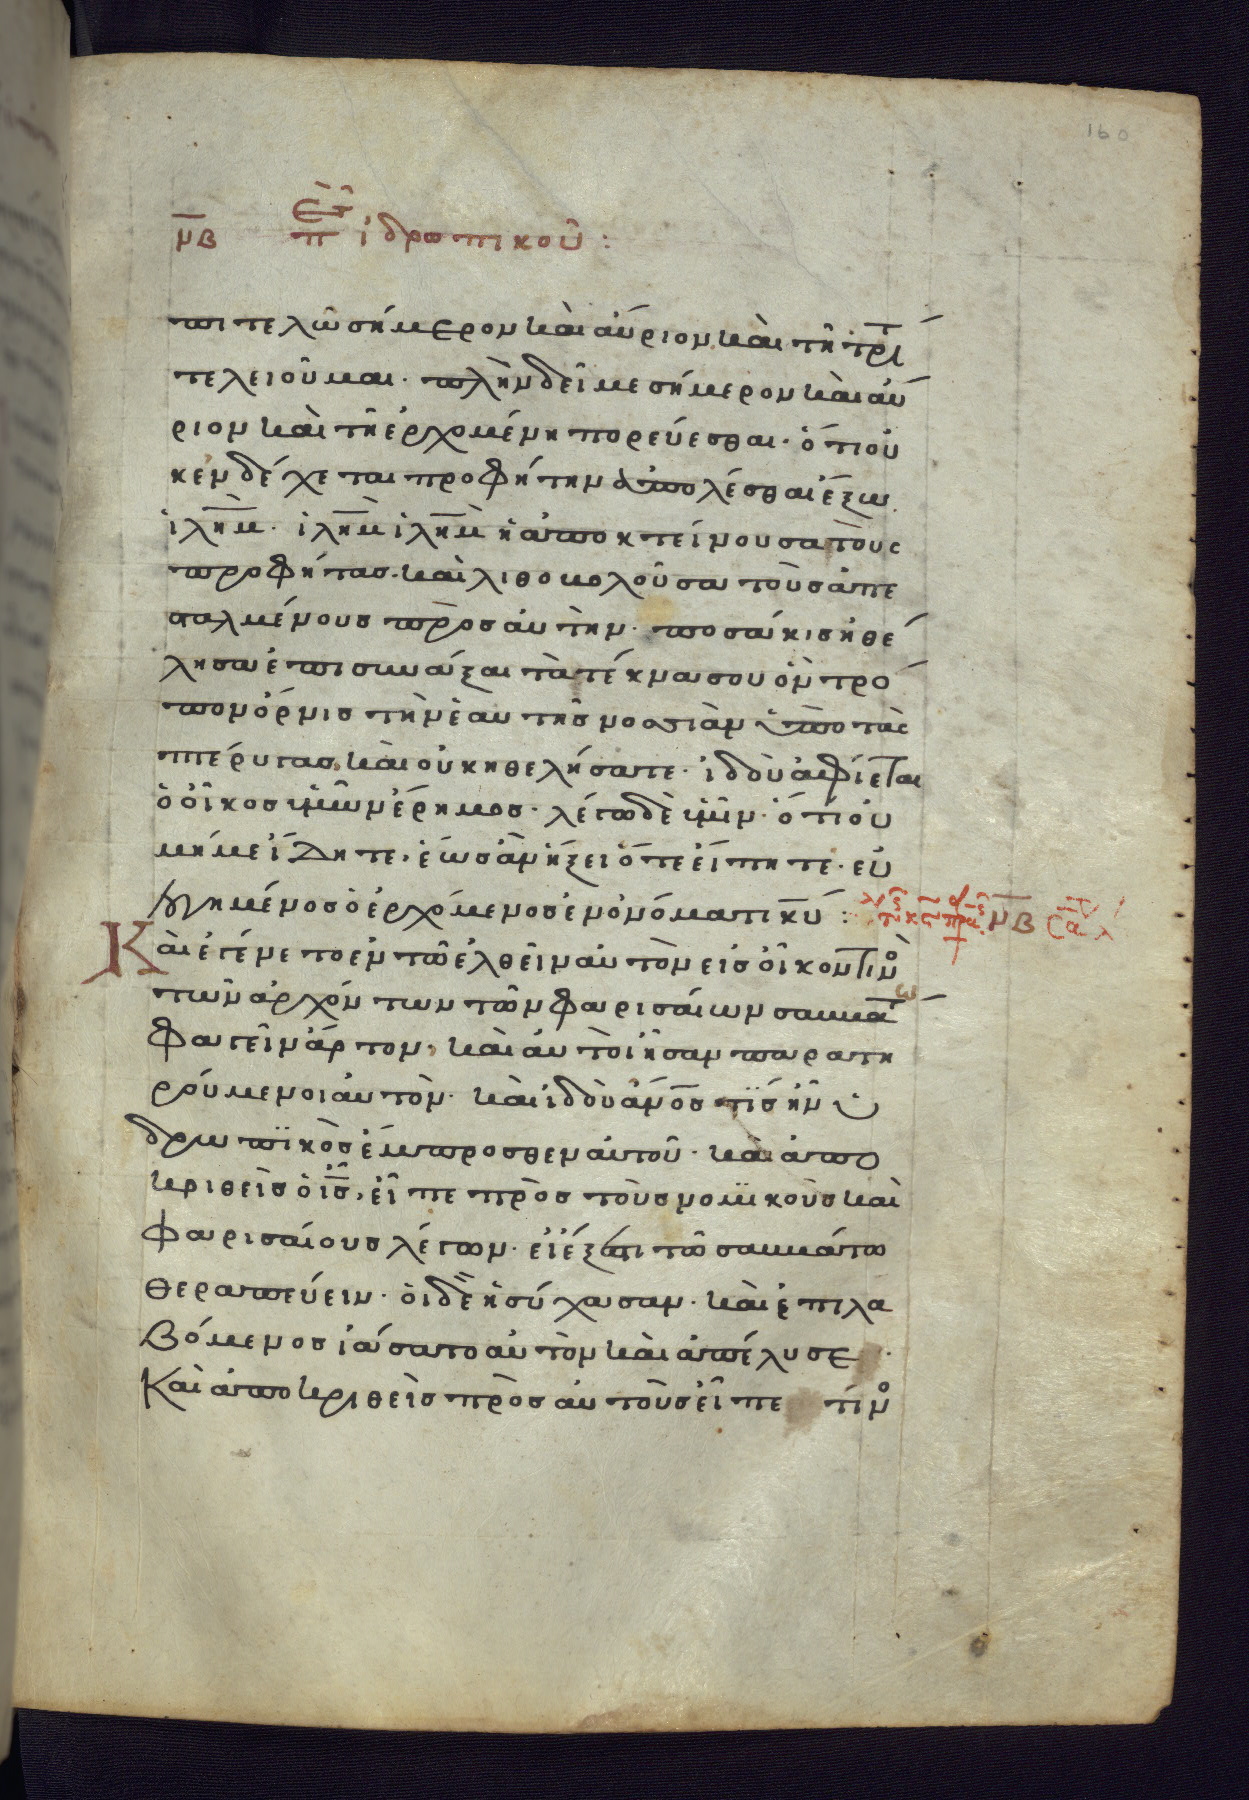 160
μβ ἐπὶ τ̑ ἰδρωπικοῦ:
πιτελῶ σήμερον καὶ αὔριον, καὶ τῆ τρί
τελειοῦμαι· πλὴν δεῖ με σήμερον καὶ αὔ
ριον καὶ τῆ ἐρχομένη πορεύεσθαι· ὅτι οὐ
κ ἐνδέχεται προφήτην ἀπολέσθαι ἔξω
ἰλη̅μ· ἰλη̅μ ἰλη̅μ ἡ ἀποκτείνουσα τοὺς
προφήτας· καὶ λιθοβολοῦσα τοὺς ἀπε
σταλμένους πρὸς αὐτήν· ποσάκις ἠθέ
λησα ἐπισυνάξαι τὰ τέκνα σου ὃν τρό
πον ὄρνις τὴν ἑαυτῆς νοσσιὰν ὑπὸ τὰς
πτέρυγας, καὶ οὐκ ἠθελήσατε· ἰδοὺ ἀφίεται
ὁ οἶκος ὑμῶν ἔρημος· λέγω δὲ ὑμῖν· ὅτι οὐ
μή με εἴδητε, ἕως ἂν ἥξει ὅτε εἴπητε· εὐ
λογημένος ὁ ἐρχόμενος ἐν ὀνόματι κ̅υ̅: μβ
Καὶ ἐγένετο ἐν τῶ ἐλθεῖν αὐτὸν εἰς οἶκον τινο
τῶν ἀρχόντων τῶν φαρισαίων σαββάτω
φαγεῖν ἄρτον, καὶ αὐτοὶ ἦσαν παρατη
ρούμενοι αὐτόν· καὶ ἰδοὺ ἄν̅ο̅ς τὶς ἦν ὑ
δρωπϊκὸς ἔμπροσθεν αὐτοῦ· καὶ ἀπο
κριθεὶς ὁ ι̅ς̅, εἶπε πρὸς τοὺς νομϊκοὺς καὶ
φαρισαίους λέγων· εἰ ἔξεστι τῶ σαββάτω
θεραπεύειν· οἱ δὲ ἡσύχασαν· καὶ ἐπιλα
βόμενος ἰάσατο αὐτὸν καὶ ἀπέλυσε·
Καὶ ἀποκριθεὶς πρὸς αὐτοὺς εἶπε τίνο